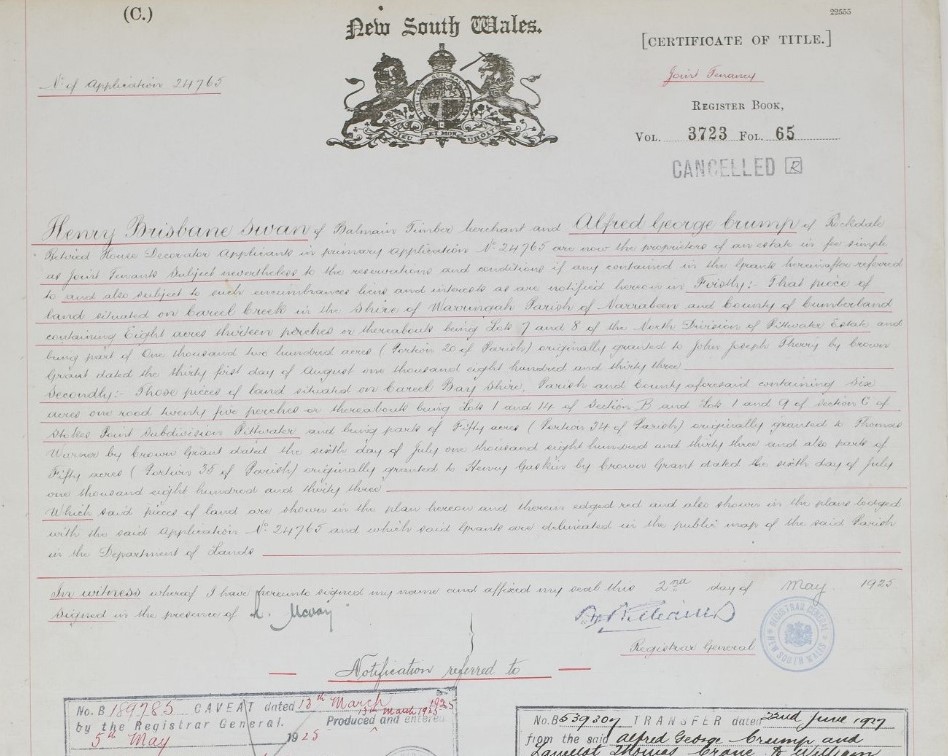 (C.)
22555
New South Wales.
[CERTIFICATE OF TITLE.]
No of Application 24765
Joint Tenancy
REGISTER BOOK,
VOL. 3723 FOL. 65
CANCELLED R
DIEU ET MON DROIT
Henry Brisbane Swan of Balmain Timber merchant and Alfred George Crump of Rockdale
Retired House Decorator Applicants in primary Application No 24765 are now the proprietors of an estate in fee simple
as Joint Tenants Subject nevertheless to the reservations and conditions if any contained in the Grants hereinafter referred
to and also subject to such encumbrances liens and interests as are notified hereon in Firstly:- That piece of
land situated on Careel Creek in the Shire of Warringah Parish of Narrabeen and County of Cumberland
containing Eight acres thirteen perches or thereabouts being Lots 7 and 8 of the North Division of Pittwater Estate and
being part of One thousand two hundred acres (Portion 20 of Parish) originally granted to John Joseph Therry by Crown
Grant dated the thirty first day of August one thousand eight hundred and thirty three
Secondly:- Those pieces of land situated on Careel Bay Shire, Parish and County aforesaid containing Six
acres one rood twenty five perches or thereabouts being Lots 1 and 14 of Section B and Lots 1 and 9 of Section C of
Stokes Point Subdivision Pittwater and being parts of Fifty acres (Portion 34 of Parish) originally granted to Thomas
Warner by Crown Grant dated the sixth day of July one thousand eight hundred and thirty three and also parts of
Fifty acres (Portion 35 of Parish) originally granted to Henry Gaskin by Crown Grant dated the sixth day of July
one thousand eight hundred and thirty three
Which said pieces of land are shown in the plan hereon and therein edged red and also shown in the plans lodged
with the said Application No 24765 and which said Grants are delineated in the public map of the said Parish
in the Department of Lands
In witness whereof I have hereunto signed my name and affixed my seal this 2nd day of May 1925
Signed in the presence of
Registrar General
REGISTRAR GENERAL NEW SOUTH WALES
Notification referred to
No. B 189785 CAVEAT dated 13th March 1925
by the Registrar General. Produced and entered
13th March 1925
5th May 1925
No. B539307 TRANSFER dated 22nd June 1927
from the said Alfred George Crump and
Lancelot Thomas Crane to William